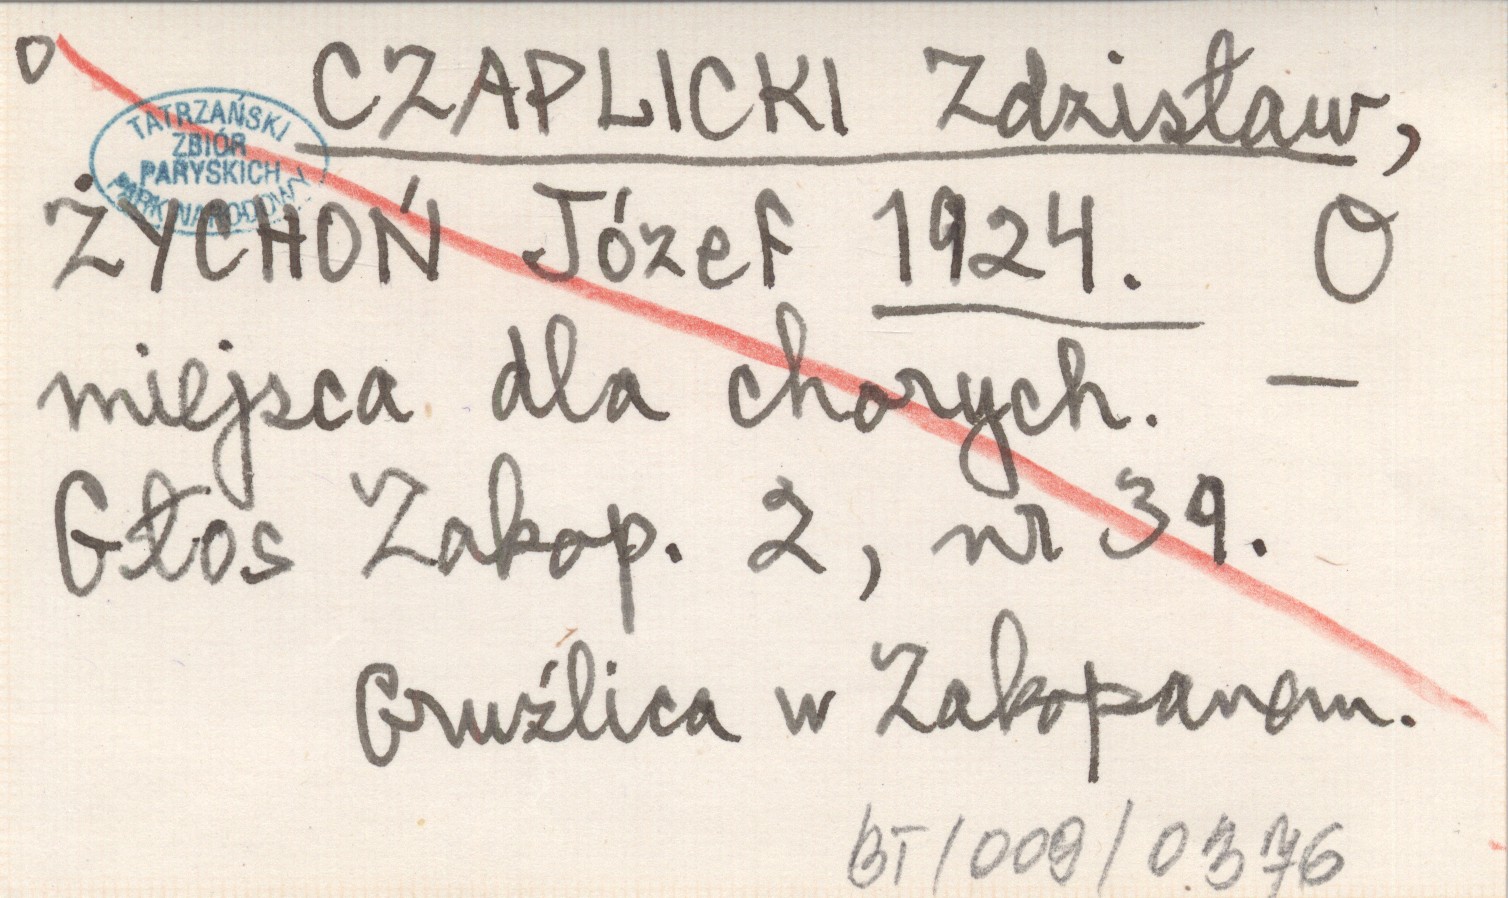 O
CZAPLICKI Zdzisław,
TATRZAŃSKI
ZBIÓR
PARYSKICH
PARK NARODOWY
ŻYCHOŃ Józef 1924. O
miejsca dla chorych. —
Głos Zakop. 2, nr 39.
Gruźlica w Zakopanem.
BT/009/0376